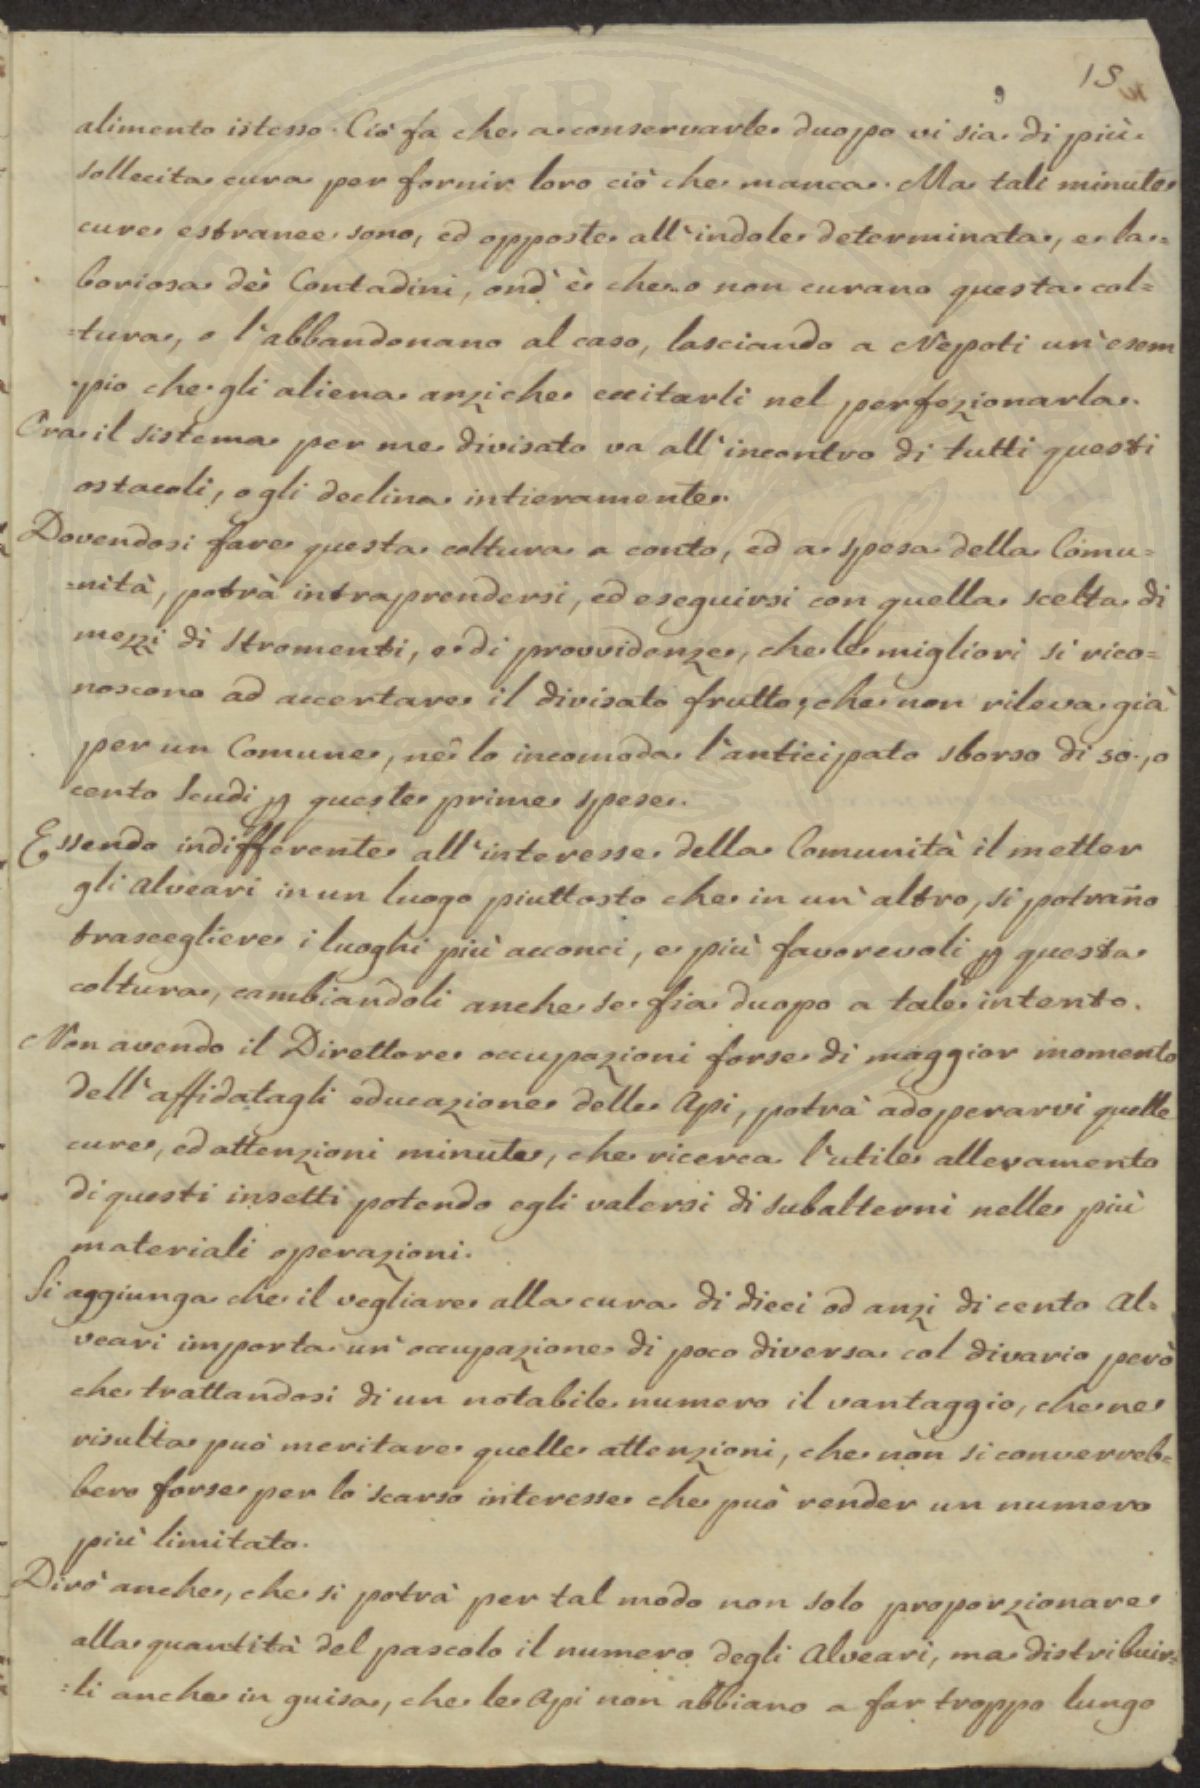 15
9
alimento istesso. Ciò fa che a conservarle duopo vi sia di più
sollecita cura per fornir loro ciò che manca. Ma tali minute
cure estranee sono, ed opposte all'indole determinata, e la=
boriosa dè Contadini, ond'è che o non curano questa col=
=tura, o l'abbandonano al caso, lasciando a Nepoti un'esem
pio che gli aliena anziche eccitarli nel perfezionarla.
Ora il sistema per me divisato va all'incontro di tutti questi
ostacoli, o gli declina intieramente.
Dovendosi fare questa coltura a conto, ed a spesa della Comu=
=nità, potrà intraprendersi, ed eseguirsi con quella scelta di
mezzi di stromenti, e di provvidenze, che le migliori si rico=
noscono ad accertare il divisato frutto; che non rileva già
per un Comune, nè lo incomoda l'anticipato sborso di 50., o
cento Scudi p queste prime spese.
Essendo indifferente all'interesse della Comunità il metter
gli alveari in un luogo piuttosto che in un'altro, si potrañо
trascegliere i luoghi più acconci, e più favorevoli p questa
coltura, cambiandoli anche se fia duopo a tale intento.
Non avendo il Direttore occupazioni forse di maggior momento
dell'affidatagli educazione delle Api, potrà adoperarvi quelle
cure, ed attenzioni minute, che ricerca l'utile allevamento
di questi insetti potendo egli valersi di subalterni nelle più
materiali operazioni.
Si aggiunga che il vegliare alla cura di dieci od anzi di cento Al=
veari importa un'occupazione di poco diversa col divario però
che trattandosi di un notabile numero il vantaggio, che ne
risulta può meritare quelle attenzioni, che non si converreb=
bero forse per lo scarso interesse che può render un numero
più limitato.
Dirò anche, che si potrà per tal modo non solo proporzionare
alla quantità del pascolo il numero degli Alveari, ma distribuir=
=li anche in guisa, che le Api non abbiano a far troppo lungo